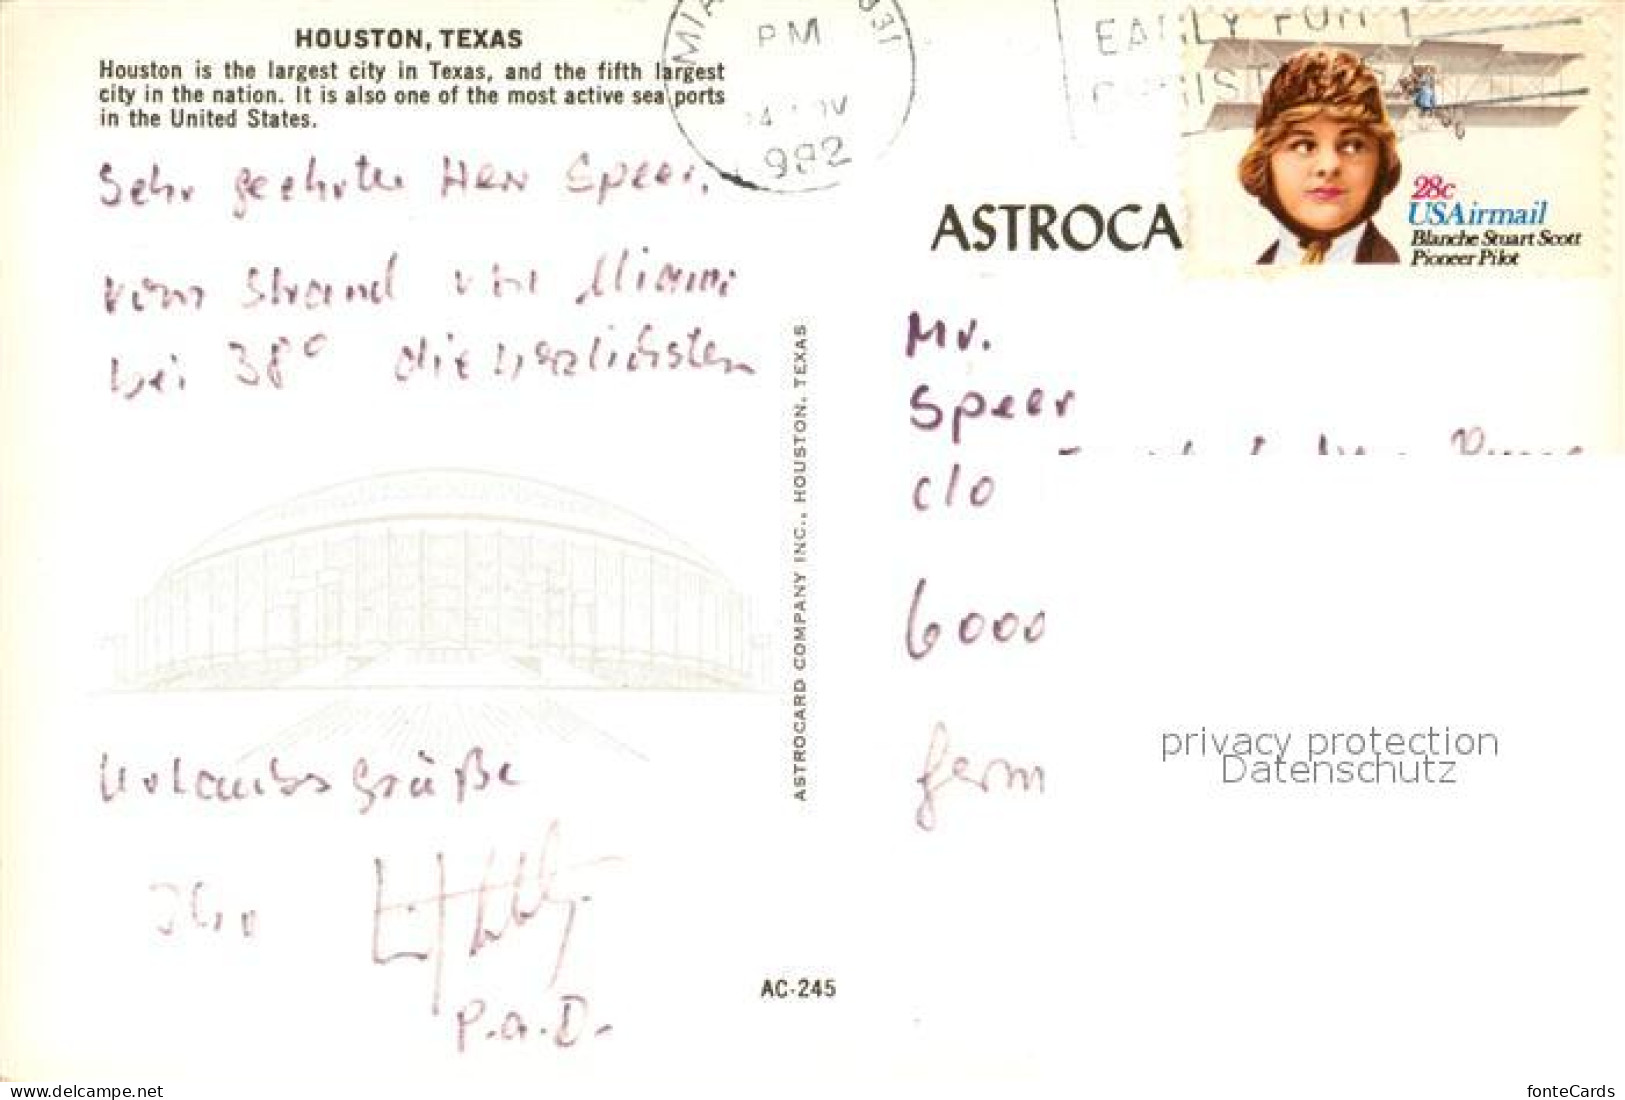 HOUSTON, TEXAS
Houston is the largest city in Texas, and the fifth largest
city in the nation. It is also one of the most active sea ports
in the United States.
PM
982
28c
USAirmail
Blanche Stuart Scott
Pioneer Pilot
ASTROCA
Sehr geehrter Herr Speer,
vom Strand von Miami
bei 38° die herzlichsten
Urlaubsgrüße
Ihr
P.a.D.
ASTROCARD COMPANY INC., HOUSTON, TEXAS
AC-245
Mr.
Speer
c/o
6000
Germ
privacy protection
Datenschutz
www.delcampe.net
fonteCards